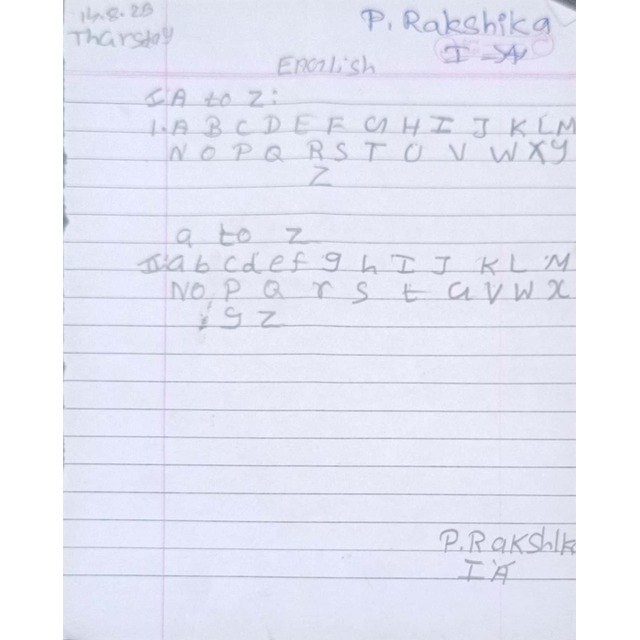 14.8.25
P. Rakshika
Tharsday
I A
English
I A to Z:
1. A B C D E F G H I J K L M
N O P Q R S T U V W X Y
Z
a to z
II a b c d e f g h I J K L M
N O P Q r S t u V W X
y Z
P. Rakshik
I A